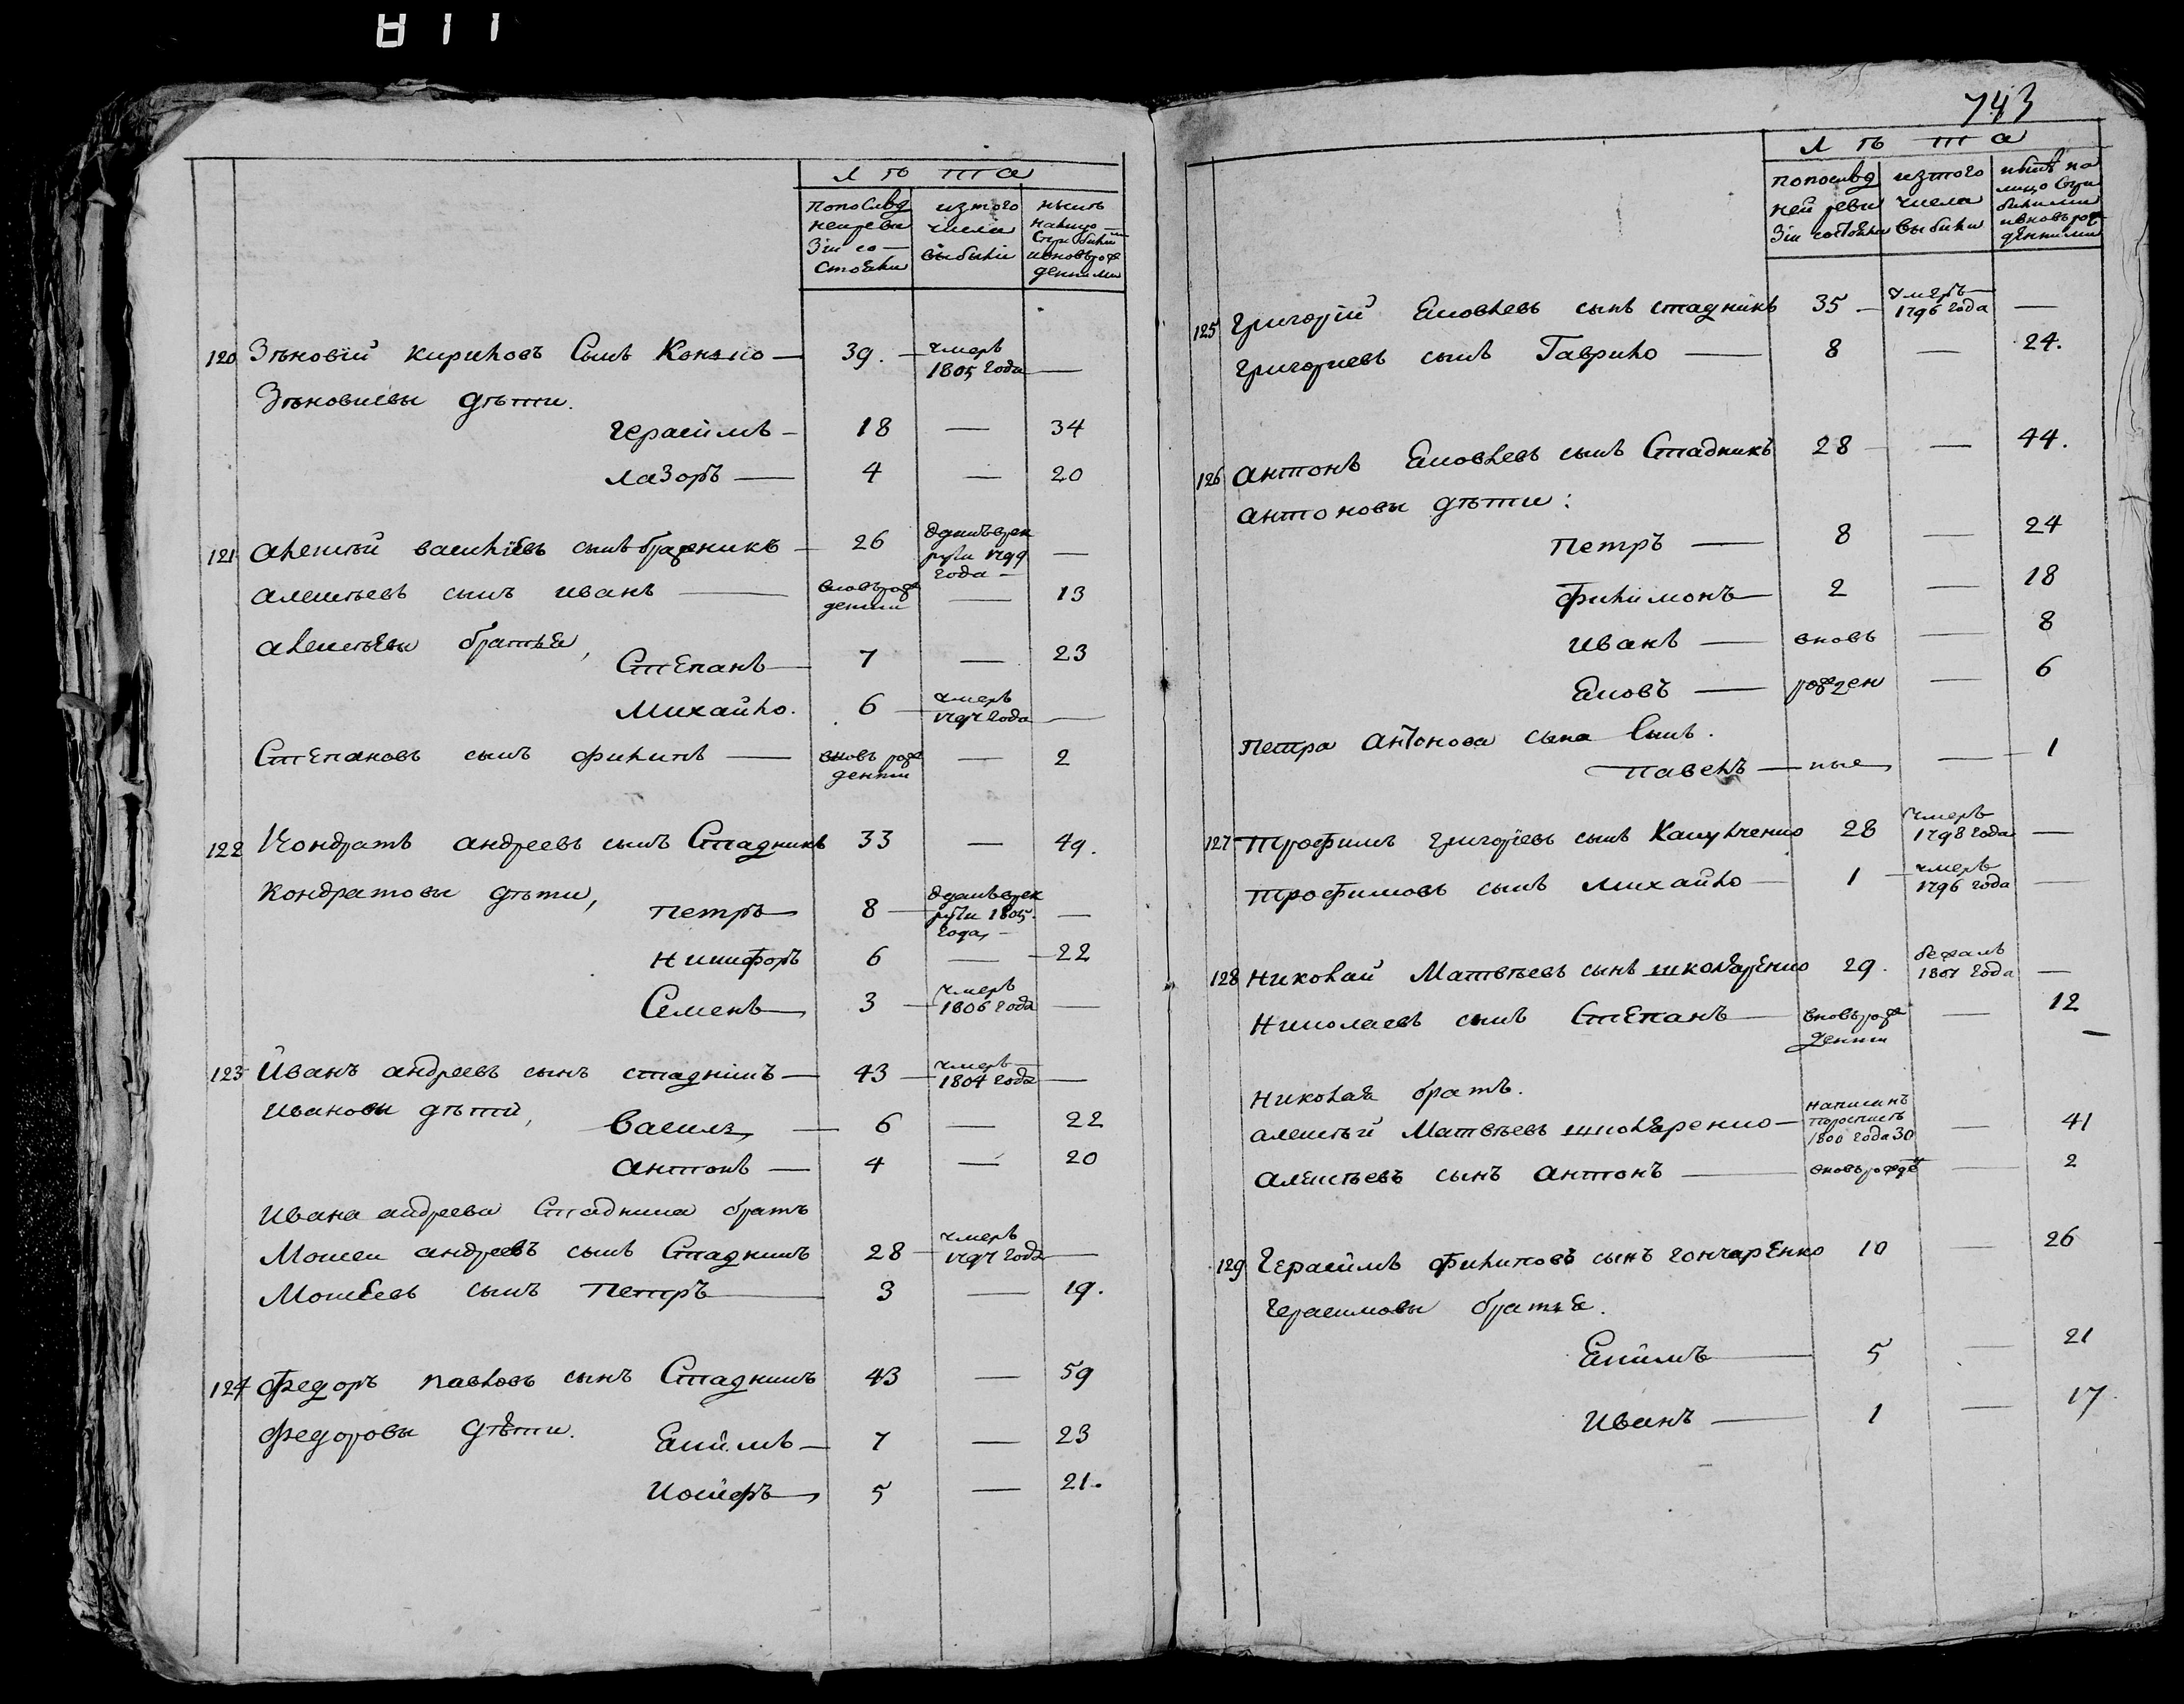 811
лѣта
попослѣд
ней реви
зіи со
стояли
изтого
числа
выбыли
нынѣ
налицо
Сприбыли
ивноврож
денными
120 Зѣновій кириловъ Сынъ Конько — 39. — умеръ 1805 года —
Зѣновиевы дѣти.
герасимъ — 18 — 34
лазоръ — 4 — 20
121 алексѣй васильевъ сынъ бражникъ — 26 отданъ врек рути 1799 года —
алексѣевъ сынъ иванъ — вновьрож денни — 13
алексѣевы братья,
Степанъ — 7 — 23
михайло. 6 — умеръ 1797 года —
Степановъ сынъ филипъ — вновь рож денни — 2
122 Кондратъ андреевъ сынъ Стадникъ 33 — 49.
кондратовы дѣти, петръ — 8 — отданъ врек рути 1805. года —
никифоръ 6 — 22
Семенъ — 3 — умеръ 1806 года —
123 Иванъ андреевъ сынъ стадникъ — 43 — умеръ 1804 года —
ивановы дѣти, василь — 6 — 22
антонъ — 4 — 20
ивана андреева Стадника братъ
Моисеи андреевъ сынъ Стадникъ 28 — умеръ 1797 года —
Моисеевъ сынъ петръ — 3 — 19.
124 федоръ павловъ сынъ Стадникъ 43 — 59
федоровы дѣти. Екимъ — 7 — 23
иосифъ — 5 — 21.
743
лѣта
попослѣд
ней реви
зіи состояли
изтого
числа
выбыли
нынѣ на
лицо Спри
былыми
ивновърож
денными
125 григорій яковлевъ сынъ стадникъ 35 — умеръ 1796 года —
григориевъ сынъ Гаврило — 8 — 24.
126 антонъ яковлевъ сынъ Стадникъ 28 — 44.
антоновы дѣти:
петръ — 8 — 24
филимонъ — 2 — 18
иванъ — вновь — 8
яковъ — рожден — 6
петра антонова сына Сынъ.
павелъ — ные — 1
127 трофимъ григорїевъ сынъ 28 умеръ 1798 года —
трофимовъ сынъ михайло — 1 — умеръ 1796 года —
128 николай Матвѣевъ сынъ школяренко 29. бежалъ 1801 года —
николаевъ сынъ Степанъ — вновьрож денни — 12
николая братъ.
алексѣй Матвѣевъ школяренко — написанъ 1800 года 30 — 41
алексѣевъ сынъ антонъ — вновьрожде — 2
129 герасимъ филиповъ сынъ гончаренко 10 — 26
герасимовы братья.
Екимъ — 5 — 21
иванъ — 1 — 17